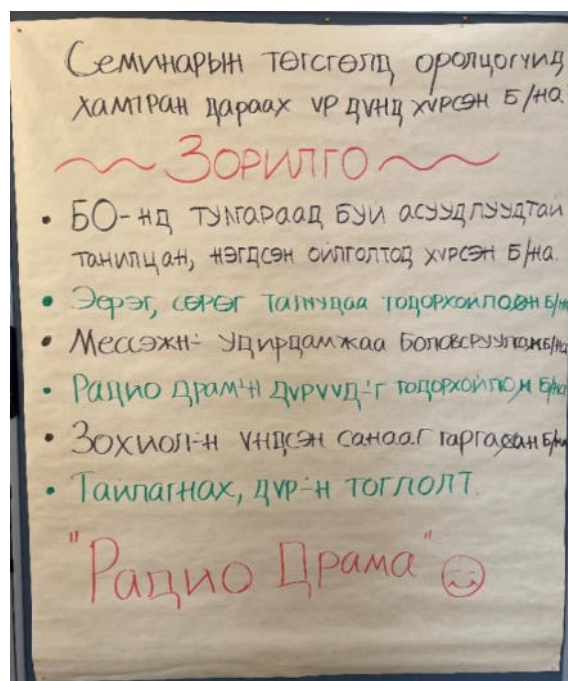 Семинарын төгсгөлд оролцогчид
хамтран дараах үр дүнд хүрсэн б/на
Зорилго
• БО-нд тулгараад буй асуудлуудтай
танилцан, нэгдсэн ойлголтод хүрсэн б/на.
• Эерэг, сөрөг талуудаа тодорхойлсон б/на
• Мессэжн- удирдамжаа боловсруулсан б/на
• Радио драм-н дүрүүд-г тодорхойлсон б/на
• Зохиол-н үндсэн санааг гаргасан б/на
• Тайлагнах, дүр-н тоглолт.
"Радио Драма"